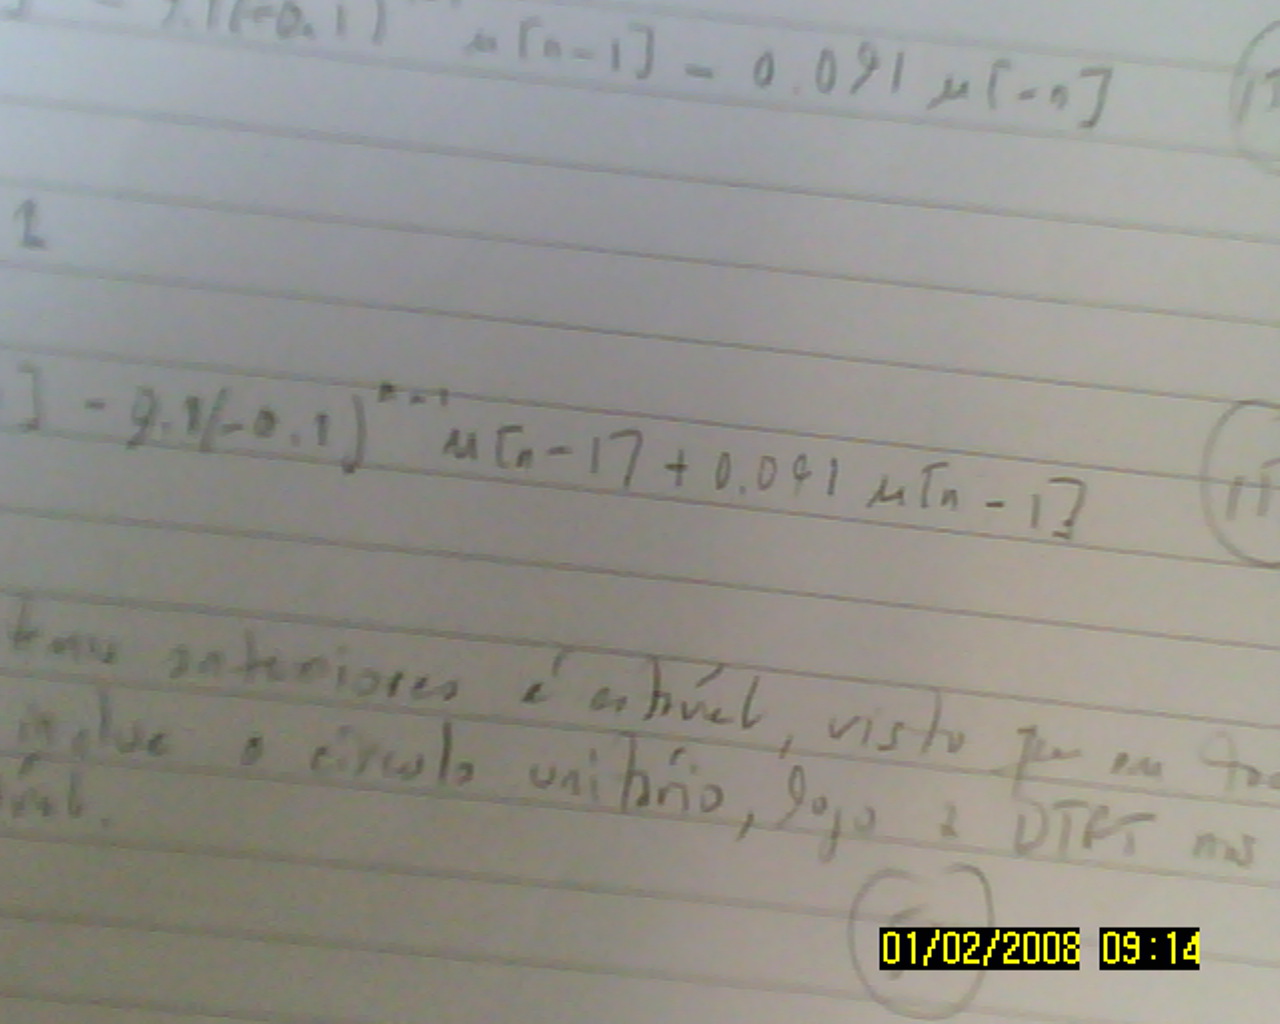 9.1(-0.1) μ[n-1] - 0.091 μ[-n]
1
] - 9.1(-0.1)ⁿ⁻¹ μ[n-1] + 0.091 μ[n-1]
anteriores é estável, visto que em
inclue o círculo unitário, logo a DTFT
01/02/2008 09:14